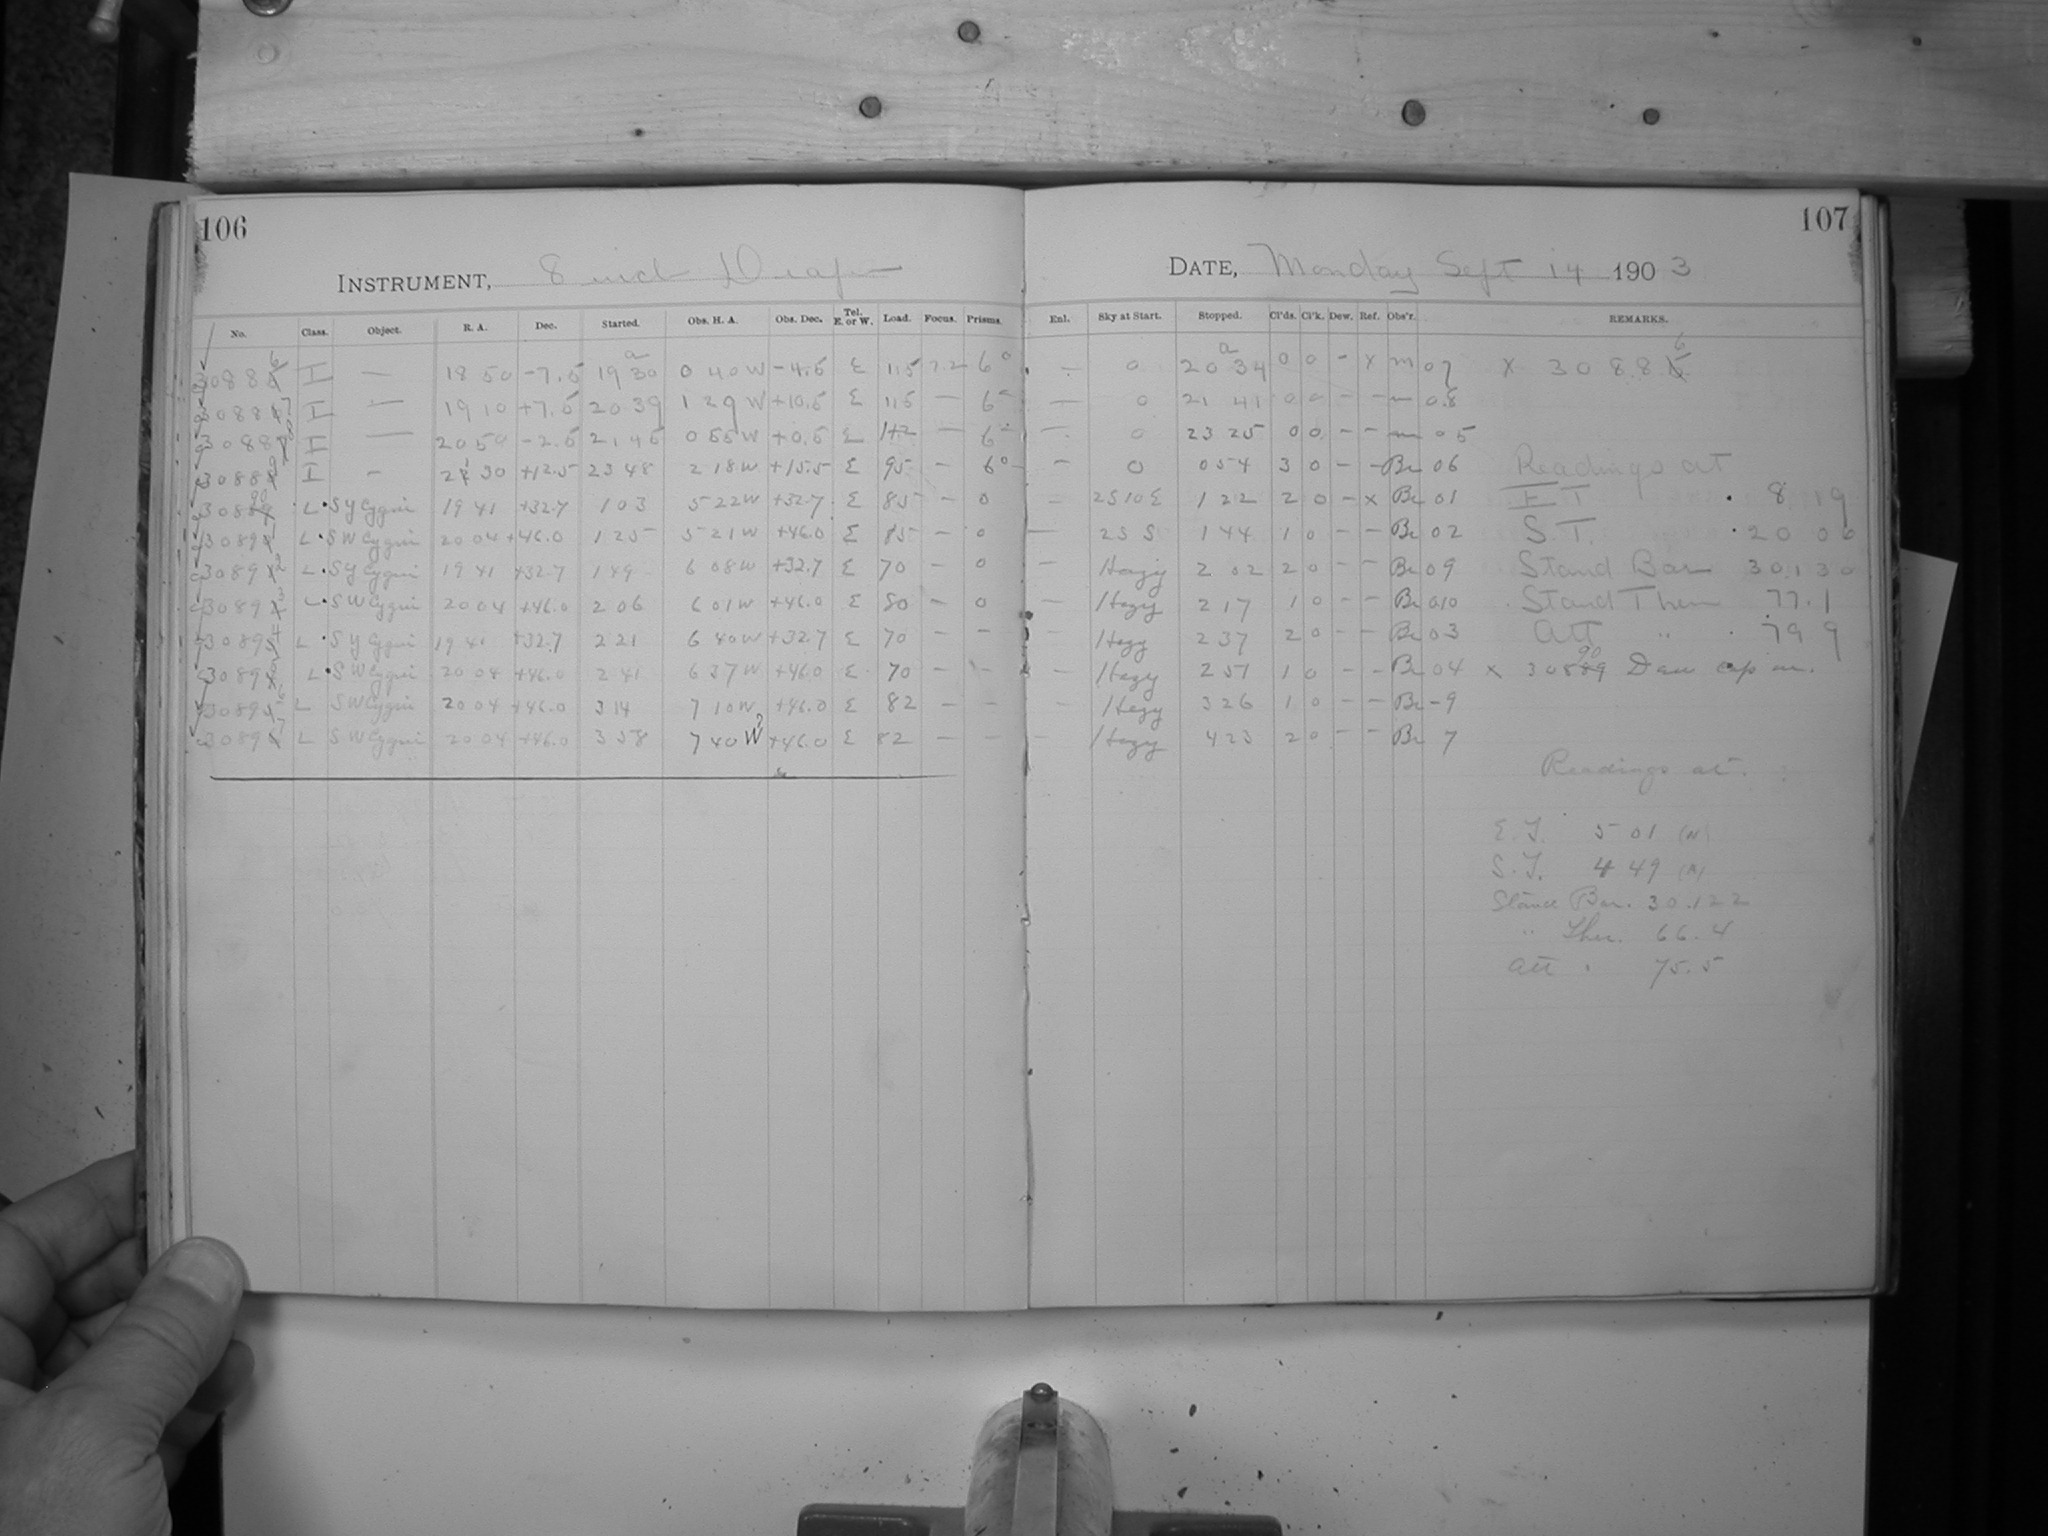 106
107
INSTRUMENT, 8 inch Draper
DATE, Monday Sept 14 1903
No. Class. Object. R. A. Dec. Started. Obs. H. A. Obs. Dec. Tel. E. or W. Load. Focus. Prisms. Enl. Sky at Start. Stopped. Cl'ds. Cl'k. Dew. Ref. Obs'r. REMARKS.
30886 I — 18 50 -7.5 19 30 0 40 W -4.5 E 115 7.2 6° — 0 20 34 0 0 - x m 07 x 30886
30887 I — 19 10 +7.5 20 39 1 29 W +10.5 E 115 — 6 — 0 21 41 0 0 - - m 08
I — 20 50 -2.5 21 45 0 55 W +0.5 E 112 — 6 — 0 23 25 0 0 - - m 05
30889 I - 21 30 +12.5 23 48 2 18 W +15.5 E 95 - 6° — 0 0 54 3 0 - - Br 06 Readings at
30890 L SY Cygni 19 41 +32.7 1 03 5 22 W +32.7 E 85 - 0 2S10E 1 22 2 0 - x Br 01 E T 8 19
3089 L SW Cygni 20 04 +46.0 1 25 5 21 W +46.0 E 85 - 0 — 2S S 1 44 1 0 - - Br 02 S. T. 20 06
30892 L SY Cygni 19 41 +32.7 1 49 6 08 W +32.7 E 70 - 0 — Hazy 2 02 2 0 - - Br 09 Stand Bar 30.130
30893 L SW Cygni 20 04 +46.0 2 06 6 01 W +46.0 E 80 - 0 — Hazy 2 17 1 0 - - Br 010 Stand Ther 77.1
30894 L SY Cygni 19 41 +32.7 2 21 6 40 W +32.7 E 70 - - — Hazy 2 37 2 0 - - Br 03 Att " 79 9
3089 L SW Cygni 20 04 +46.0 2 41 6 37 W +46.0 E 70 - - — Hazy 2 51 1 0 - - Br 04 x 30890 Dew cap on.
30896 L SW Cygni 20 04 +46.0 3 14 7 10 W +46.0 E 82 - - — Hazy 3 26 1 0 - - Br -9
30897 L SW Cygni 20 04 +46.0 3 58 7 40 W? +46.0 E 82 — — — Hazy 4 23 2 0 - - Br 7
Readings at.
E. T. 5 01
S. T. 4 49
Stand Bar. 30.122
" Ther. 66.4
Att 75.5